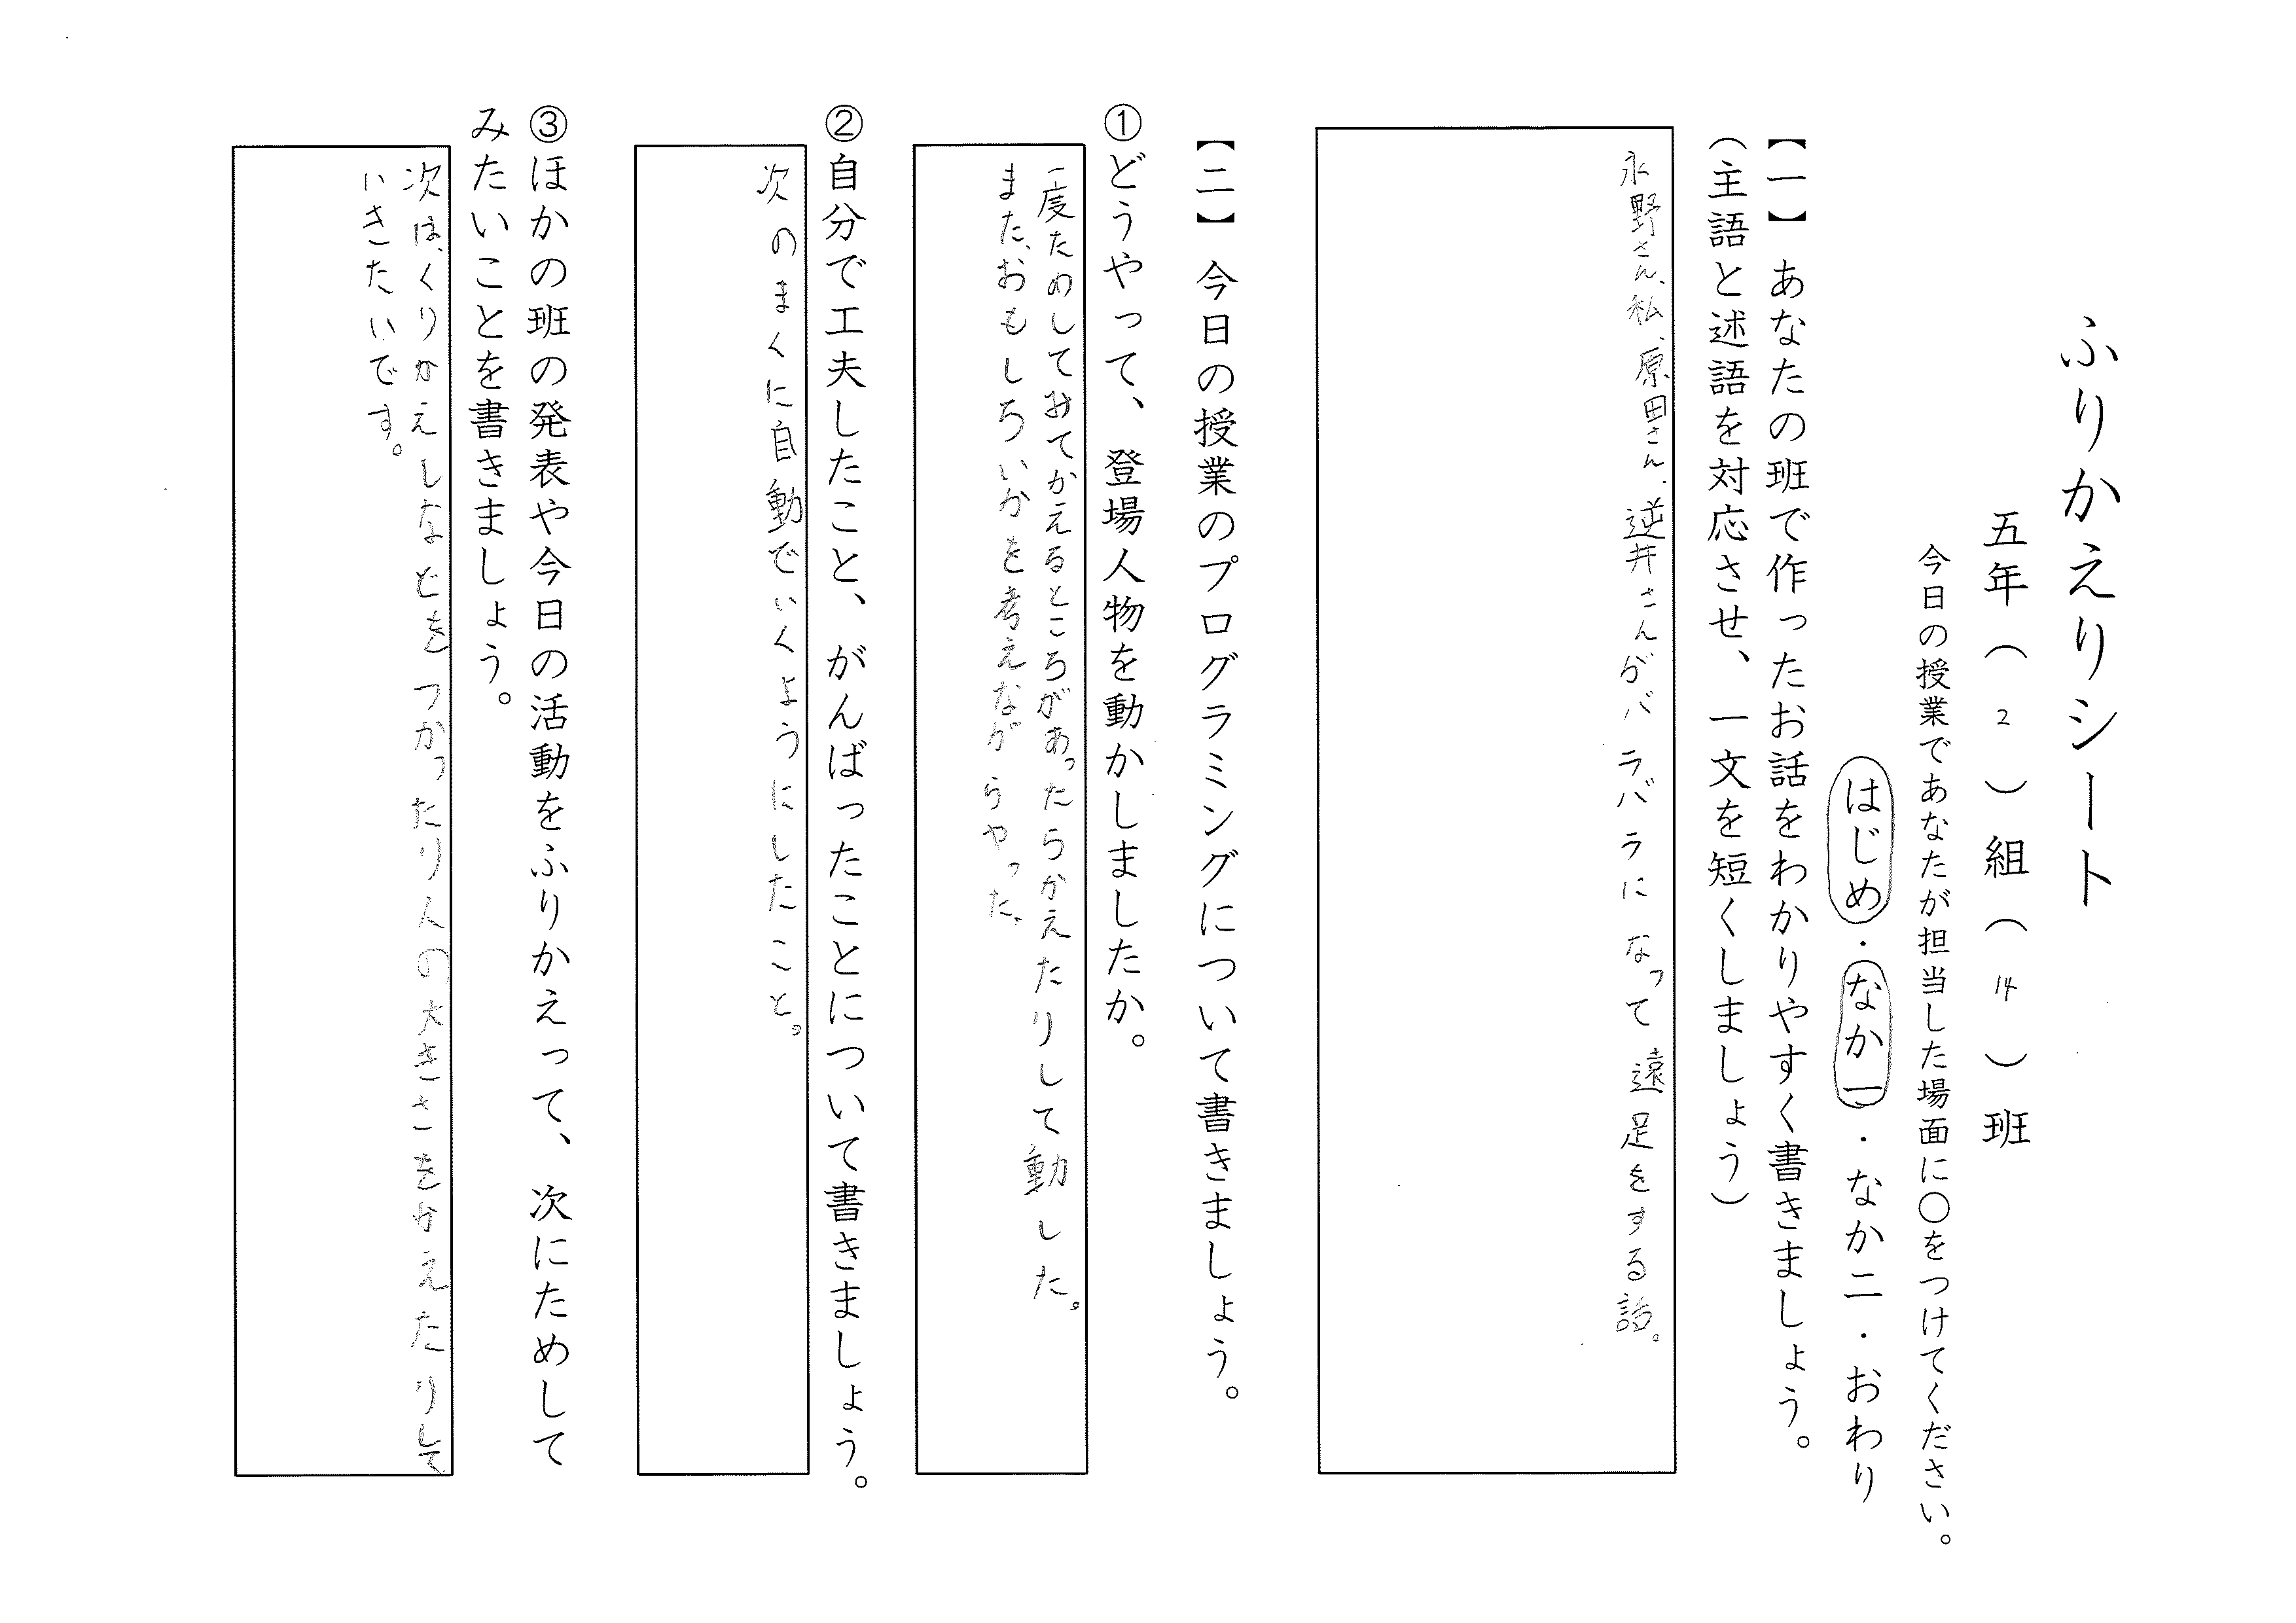 ふりかえりシート
五年（２）組（14）班
今日の授業であなたが担当した場面に○をつけてください。
はじめ・なか一・なか二・おわり
【一】あなたの班で作ったお話をわかりやすく書きましょう。
（主語と述語を対応させ、一文を短くしましょう）
永野さん、私、原田さん、逆井さんがバラバラになって遠足をする話。
【二】今日の授業のプログラミングについて書きましょう。
①どうやって、登場人物を動かしましたか。
一度ためしてみてかえるところがあったらかえたりして動した。
また、おもしろいかを考えながらやった。
②自分で工夫したこと、がんばったことについて書きましょう。
次のまくに自動でいくようにしたこと。
③ほかの班の発表や今日の活動をふりかえって、次にためして
みたいことを書きましょう。
次は、くりかえしなどをつかったり人の大きさをかえたりして
いきたいです。